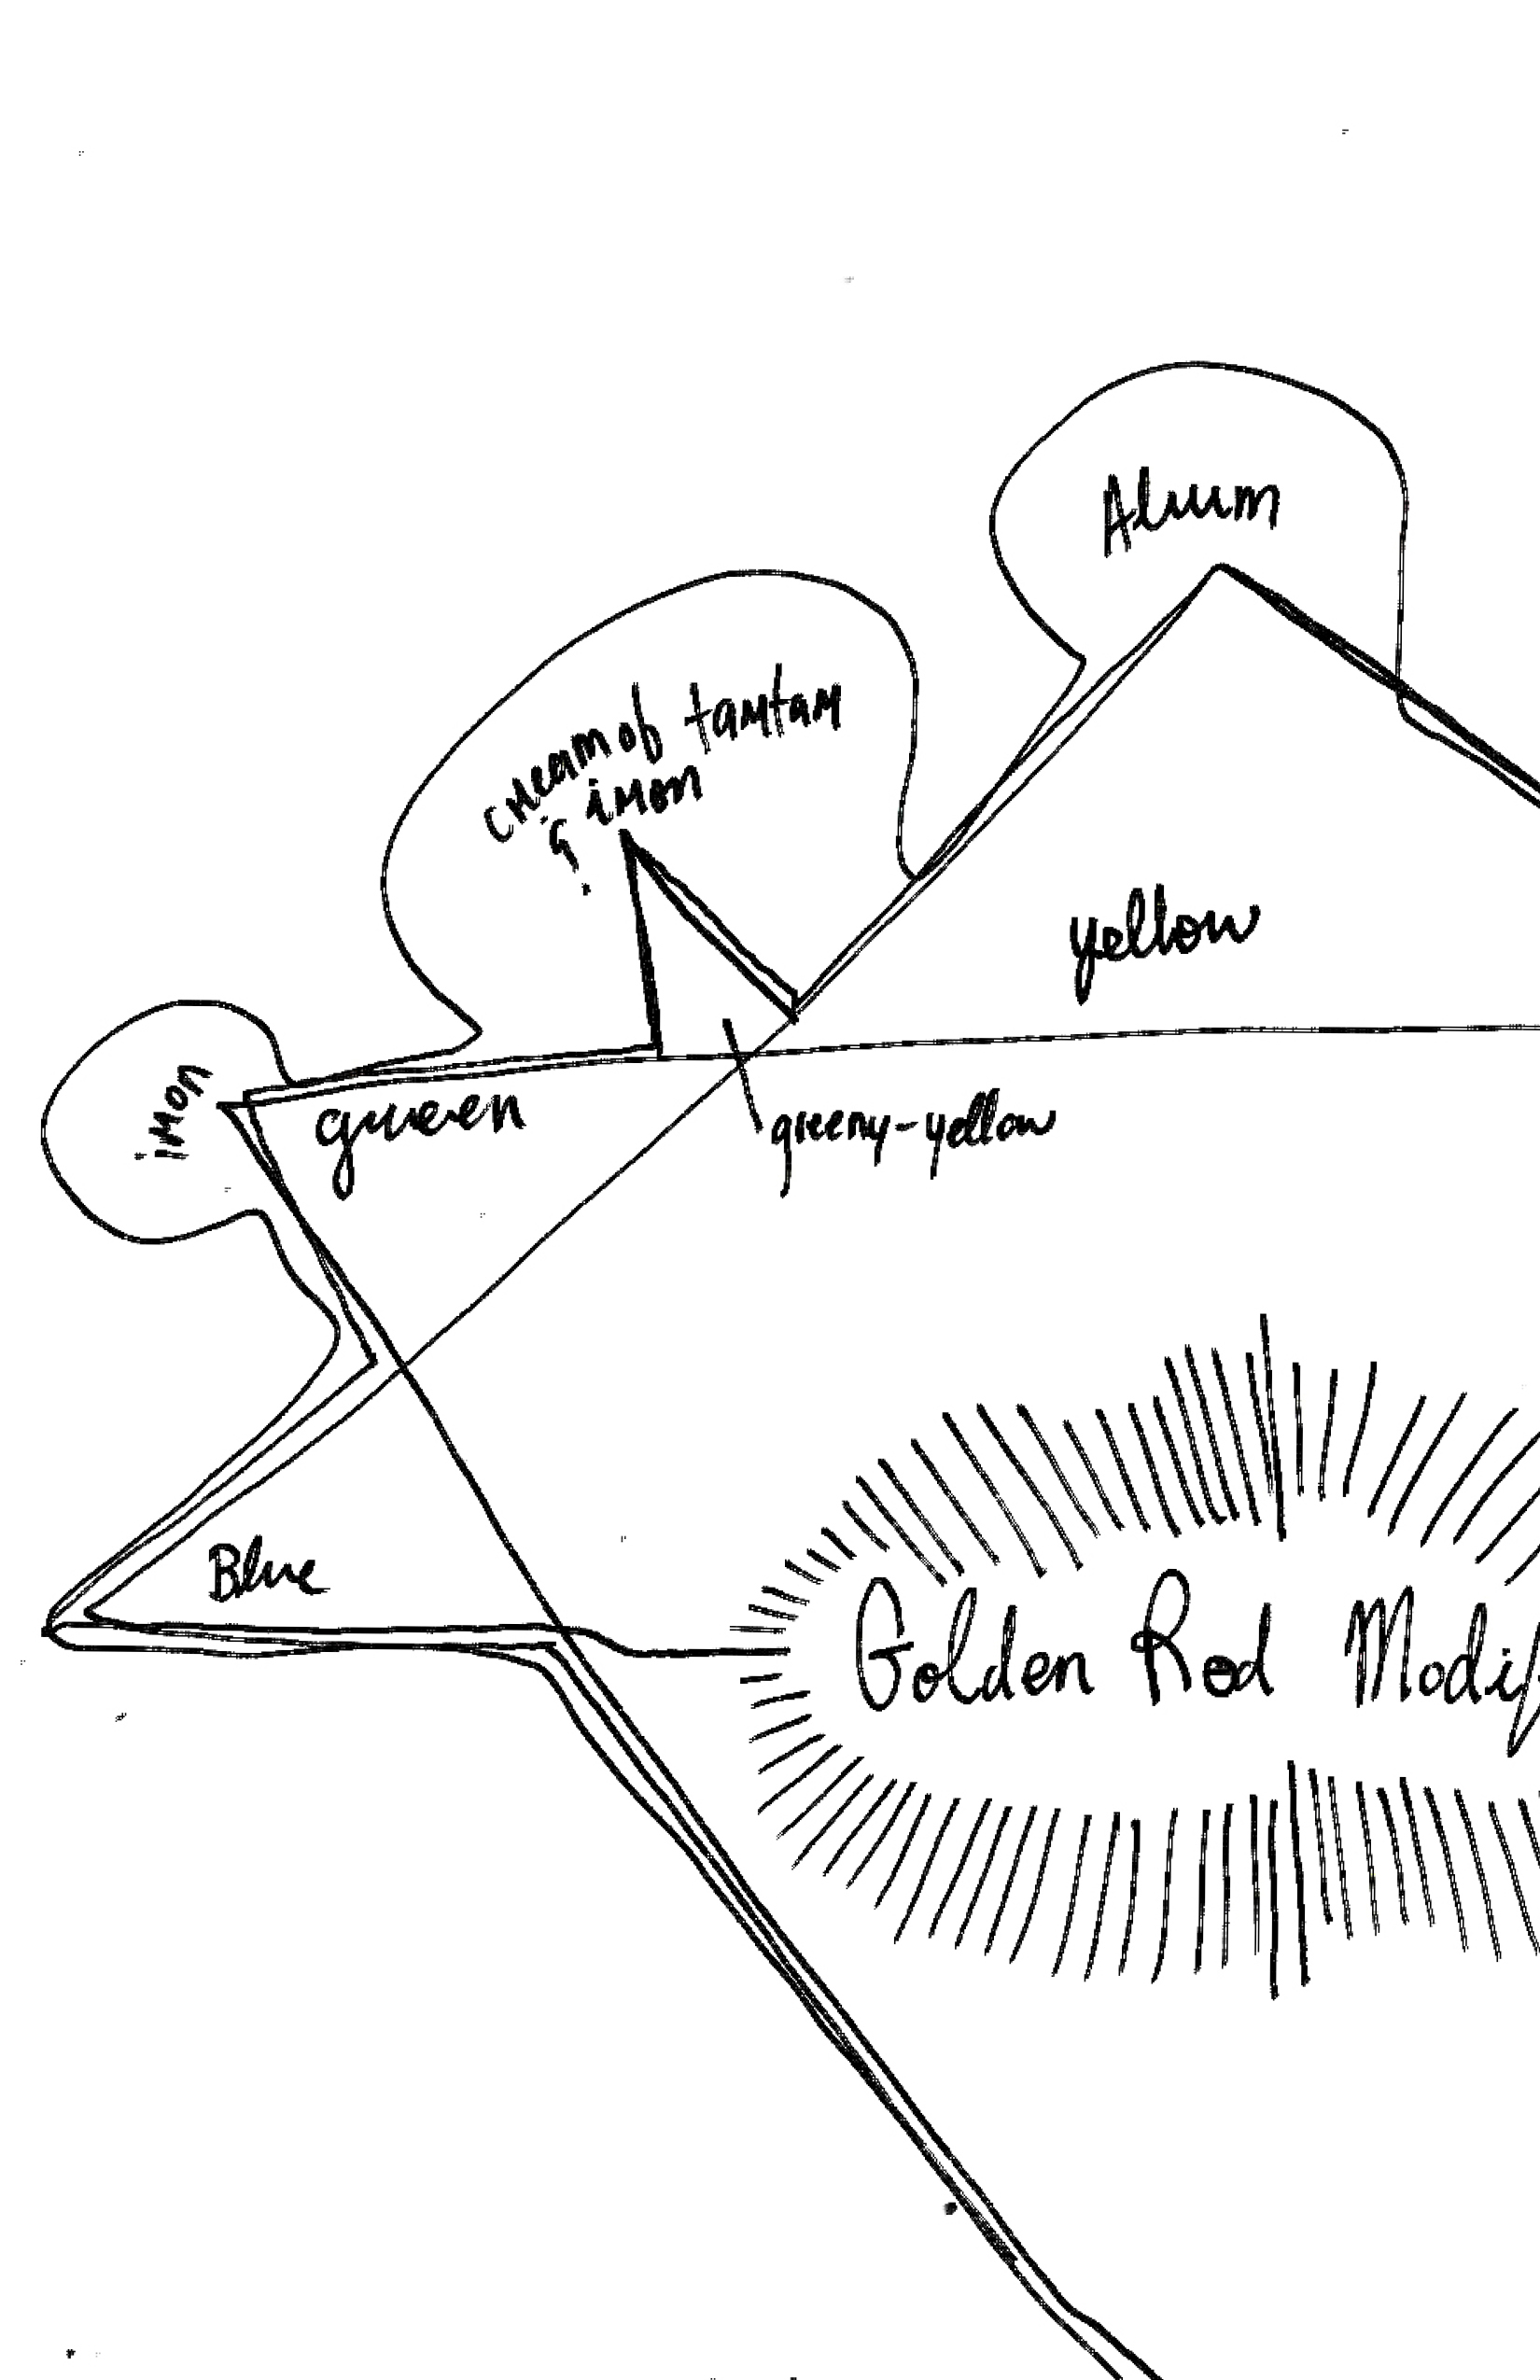 Alum
cream of tartar
& iron
yellow
iron
green
greeny-yellow
Blue
Golden Rod Modif